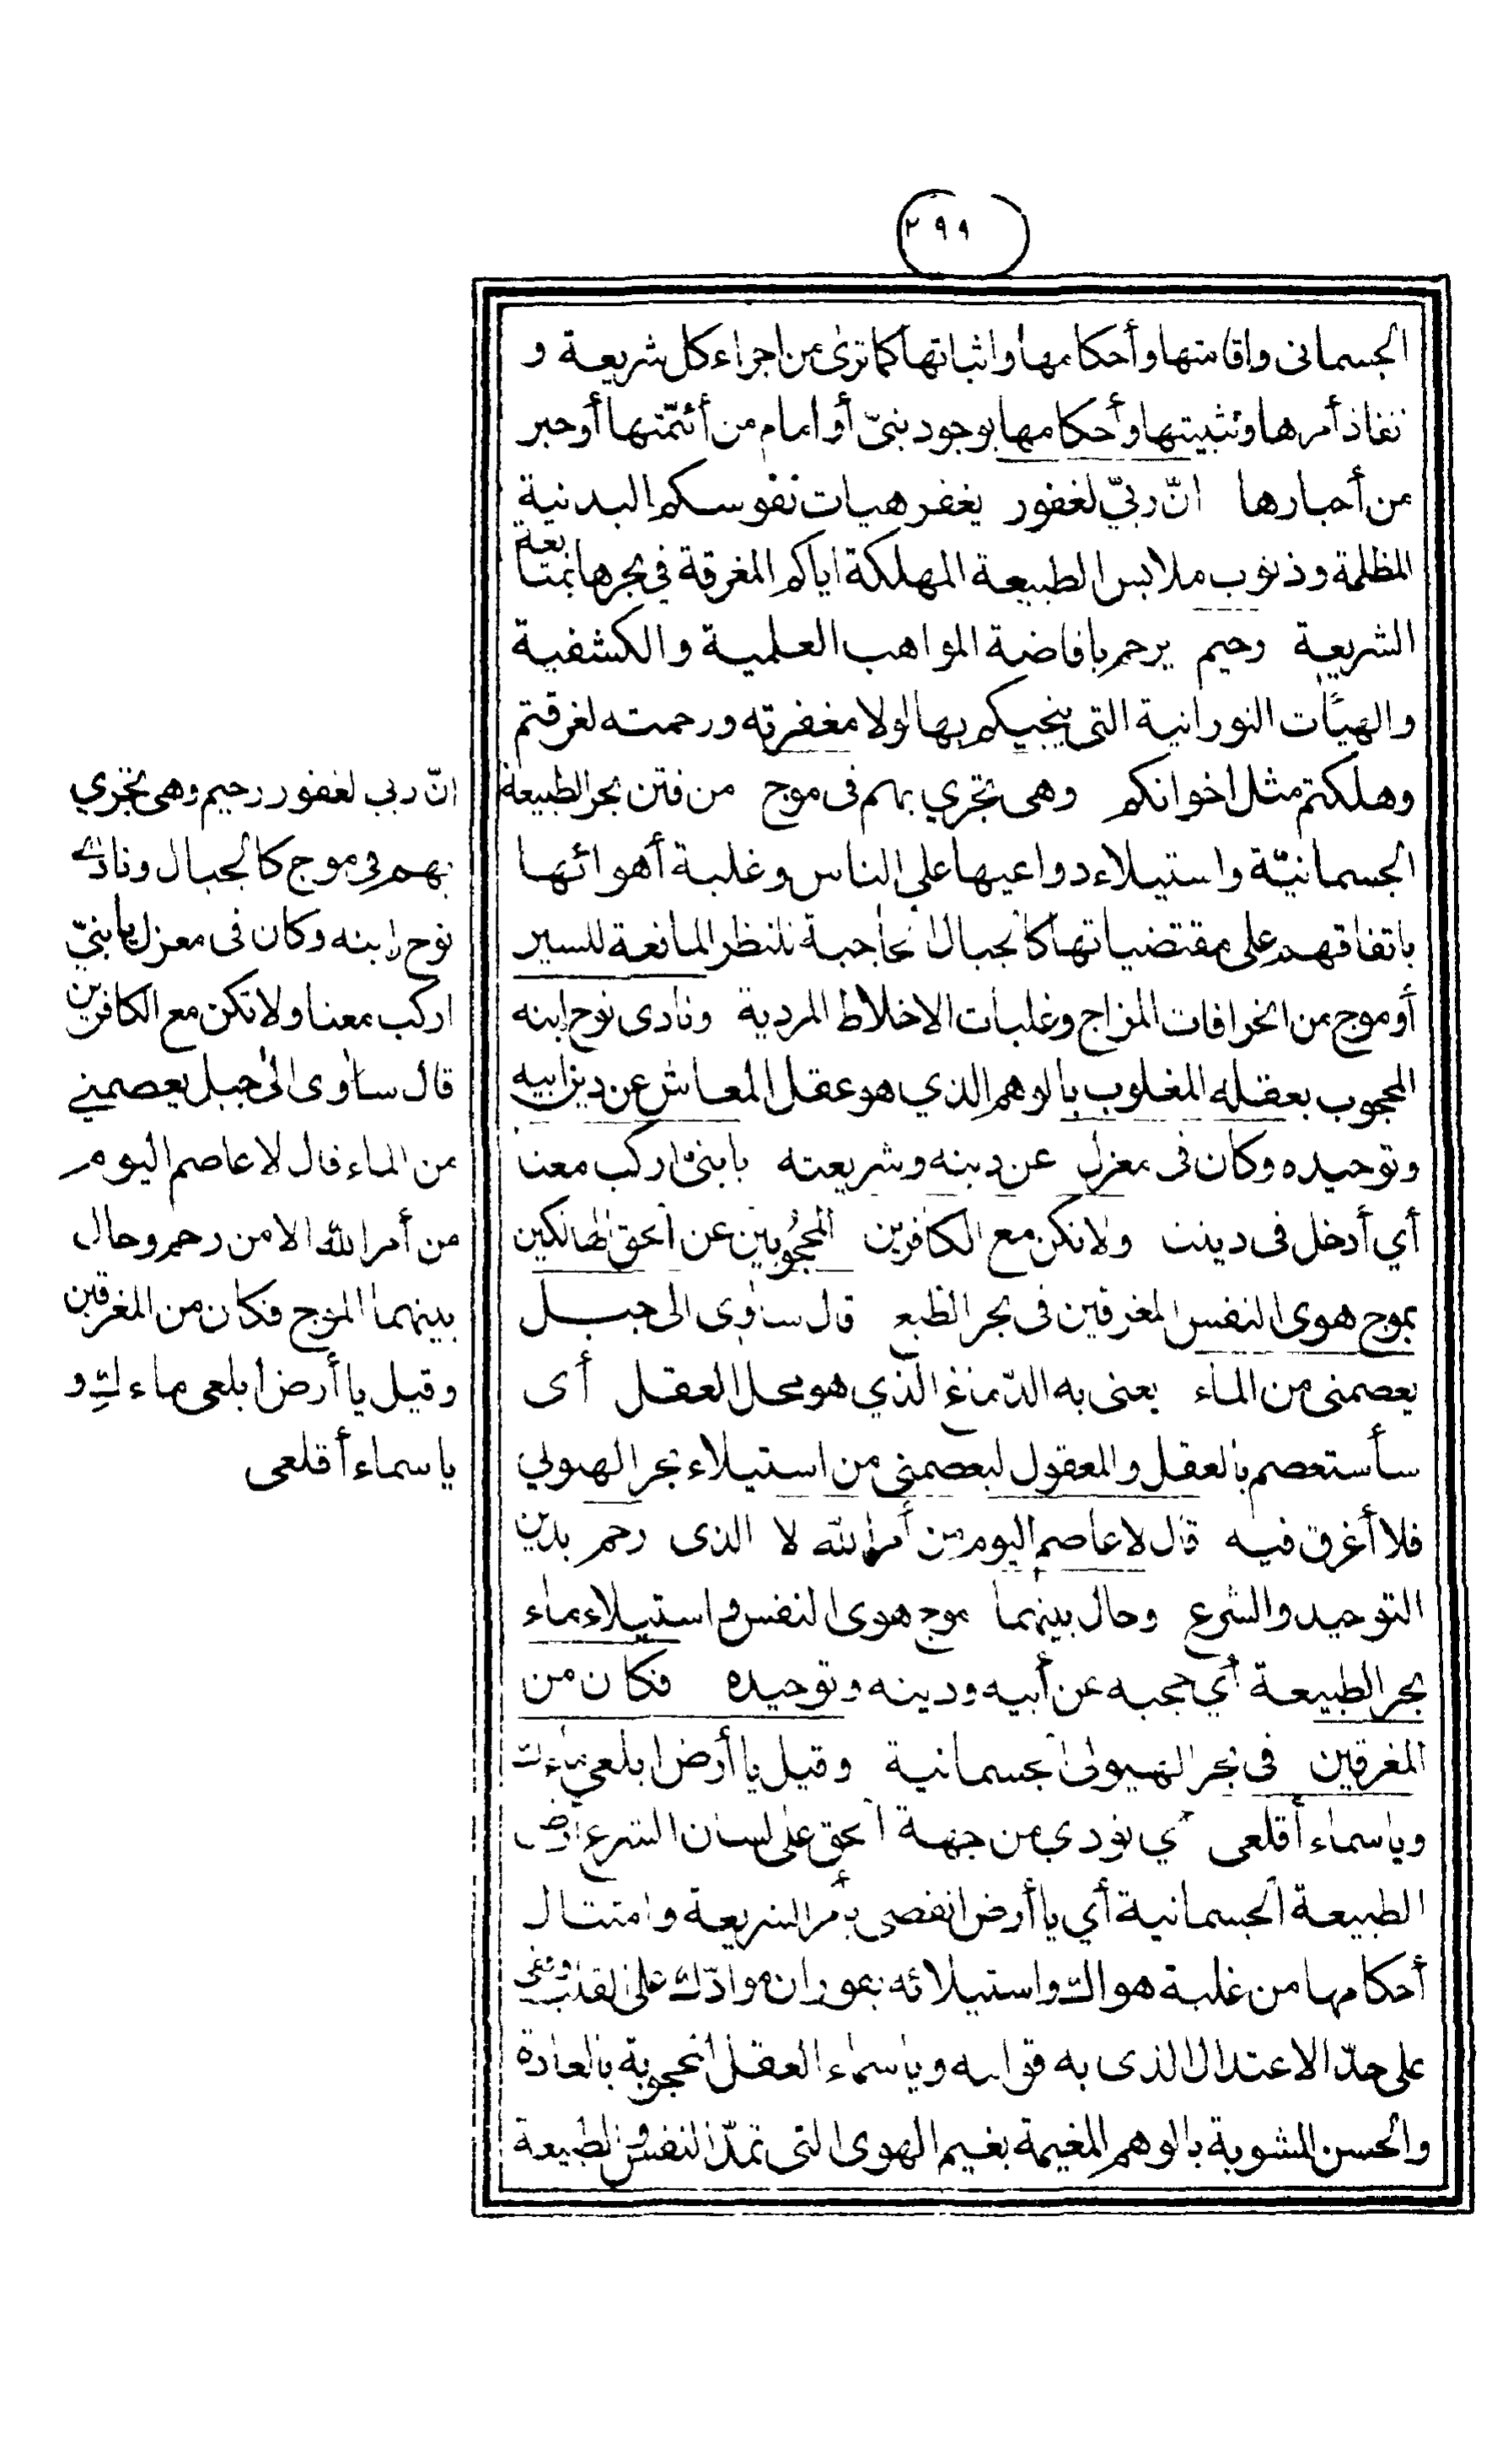 ٢٩٩
الجسمانى واقامتها وأحكامها واثباتها كما ترى من اجراء كل شريعة و
نفاذ أمرها وتثبيتها وأحكامها بوجود نبىّ أو امام من أئمّتها أو حبر
من أحبارها انّ ربيّ لغفور يغفر هيات نفوسكم البدنية
المظلمة وذنوب ملابس الطبيعة المهلكة اياكم المغرقة في بحرها بمتابعة
الشريعة رحيم يرحم بافاضة المواهب العلمية والكشفية
والهيئات النورانية التى ينجيكم بها لولا مغفرته ورحمته لغرقتم
وهلكتم مثل اخوانكم وهى تجري بهم فى موج من فتن بحر الطبيعة
الجسمانيّة واستيلاء دواعيها على الناس وغلبة أهوائها
باتفاقهم على مقتضياتها كالجبال الحاجبة للنظر المانعة للسير
أو موج من انحرافات المزاج وغلبات الاخلاط المردية ونادى نوح ابنه
المحجوب بعقله المغلوب بالوهم الذي هو عقل المعاش عن دين ابيه
وتوحيده وكان فى معزل عن دينه وشريعته يابنىّ اركب معنا
أي أدخل فى ديننا ولا تكن مع الكافرين المحجوبين عن الحق الهالكين
بموج هوى النفس المغرقين فى بحر الطبع قال سآوى الى جبل
يعصمنى من الماء يعنى به الدّماغ الذي هو محل العقل أى
سأستعصم بالعقل والمعقول ليعصمنى من استيلاء بحر الهيولي
فلا أغرق فيه قال لا عاصم اليوم من أمر الله لا الذى رحم بدين
التوحيد والشرع وحال بينهما موج هوى النفس واستيلاء ماء
بحر الطبيعة أي حجبه عن أبيه ودينه وتوحيده فكان من
المغرقين فى بحر الهيولى الجسمانية وقيل يا أرض ابلعي ماءك
ويا سماء أقلعى أي نودي من جهة الحق على لسان الشرع أرض
الطبيعة الجسمانية أي يا أرض انقصى بأمر الشريعة وامتثال
أحكامها من غلبة هواك واستيلائه بفوران موادّك على القلب وقفى
على حدّ الاعتدال الذى به قوامه ويا سماء العقل المحجوبة بالعادة
والحسن المشوبة بالوهم المغيمة بغيم الهوى التى تمدّ النفس والطبيعة
انّ ربى لغفور رحيم وهى تجري
بهم في موج كالجبال ونادى
نوح ابنه وكان فى معزل يابنىّ
اركب معنا ولا تكن مع الكافرين
قال سآوى الى جبل يعصمني
من الماء قال لا عاصم اليوم
من أمر الله الا من رحم وحال
بينهما الموج فكان من المغرقين
وقيل يا أرض ابلعى ماءك و
يا سماء أقلعى